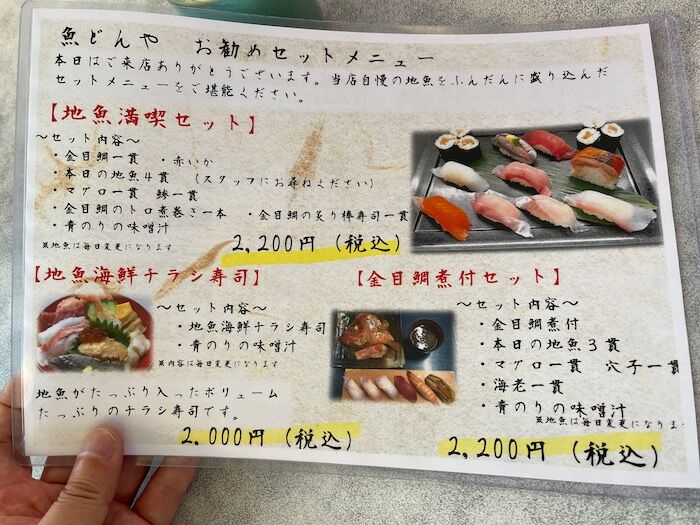 魚どんや　お勧めセットメニュー
本日はご来店ありがとうございます。当店自慢の地魚をふんだんに盛り込んだ
セットメニューをご堪能ください。
【地魚満喫セット】
～セット内容～
・金目鯛一貫　・赤いか
・本日の地魚4貫　(スタッフにお尋ねください)
・マグロ一貫　鯵一貫
・金目鯛のトロ煮巻き一本　・金目鯛の炙り棒寿司一貫
・青のりの味噌汁
※地魚は毎日変更になります
2,200円（税込）
【地魚海鮮チラシ寿司】
～セット内容～
・地魚海鮮チラシ寿司
・青のりの味噌汁
※内容は毎日変更になります
地魚がたっぷり入ったボリューム
たっぷりのチラシ寿司です。
2,000円（税込）
【金目鯛煮付セット】
～セット内容～
・金目鯛煮付
・本日の地魚3貫
・マグロ一貫　穴子一貫
・海老一貫
・青のりの味噌汁
※地魚は毎日変更になりま
2,200円（税込）